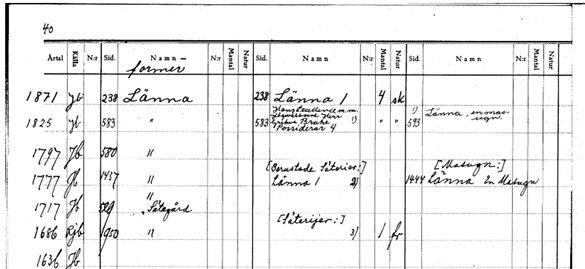 40
Årtal Källa N:r Sid. Namn Mantal Natur Sid. Namn N:r Mantal Natur Sid. Namn Mantal Natur
former
1871 Jb 238 Länna 238 Länna 1 4 sk
1825 Jb 583 " 583 Brahe 1) " " 1) 583 Länna, en mas-
ugn.
1797 Jb 580 "
[Berustade Säterier:] [Masugn:]
1777 Jb 1437 " Länna 1 2) 1444 Länna En Masugn
"
1717 Jb 529 " Sätegård
[Säterijer:]
1686 Rjb 1950 " 3) 1 fr
1636 Jb